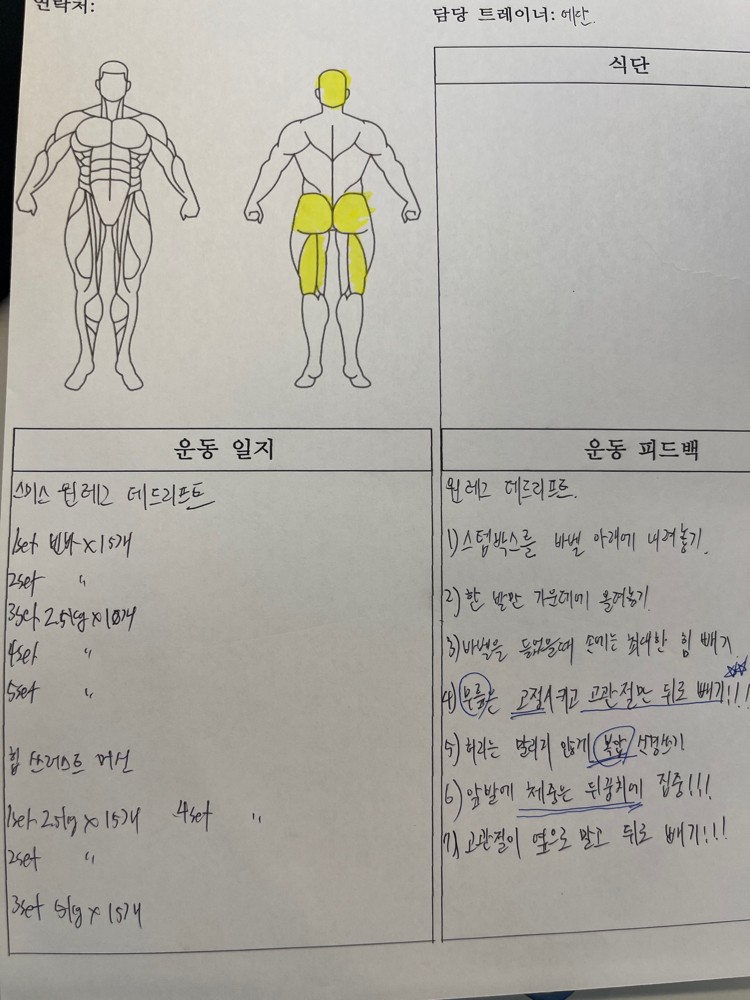 연락처:
담당 트레이너: 에단.
식단
운동 일지
스미스 원레그 데드리프트
1set 빈바 x 15개
2set 〃
3set 2.5kg x 10개
4set 〃
5set 〃
힙 쓰러스트 머신
1set 2.5kg x 15개 4set 〃
2set 〃
3set 5kg x 15개
운동 피드백
원레그 데드리프트.
1) 스텝박스를 바벨 아래에 내려놓기.
2) 한 발만 가운데에 올려놓기.
3) 바벨을 들었을때 손에는 최대한 힘 빼기.
4) 무릎은 고정시키고 고관절만 뒤로 빼기!!!
5) 허리는 말리지 않게 복압 신경쓰기
6) 앞발에 체중은 뒤꿈치에 집중!!!
7) 고관절이 옆으로 말고 뒤로 빼기!!!